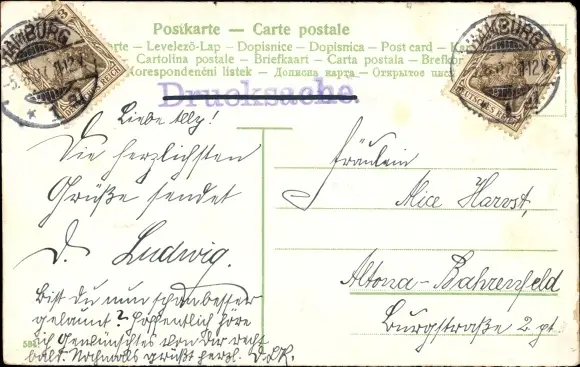 Postkarte — Carte postale
karte — Levelező-Lap — Dopisnice — Dopisnica — Post card —
Cartolina postale — Briefkaart — Carta postala — Brefkort
Korespondenční lístek — Дописна карта — Открытое
Drucksache
HAMBURG
HAMBURG
DEUTSCHES REICH
Liebe Elly!
Die herzlichsten
Grüße sendet
D. Ludwig.
Bist du nun schon besser
gelaunt? Hoffentlich höre
ich Gewünschtes von dir recht
bald. Nochmals grüßt herzl. D.L.K.
Fräulein
Alice Harvst,
Altona-Bahrenfeld
Burgstraße 2 pt.